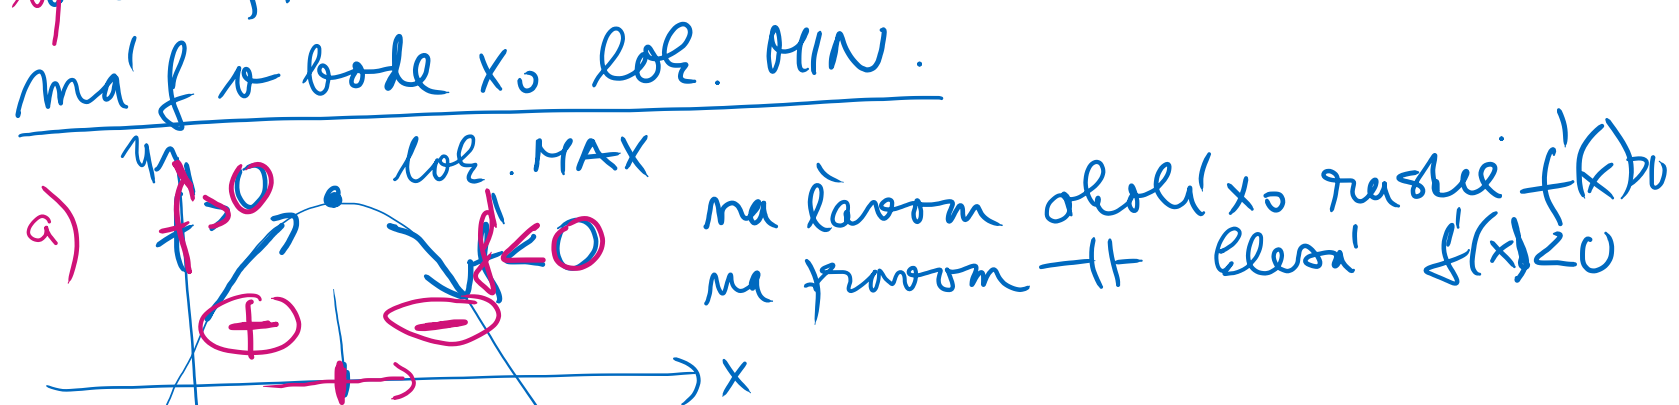 má f v bode x₀ lok. MIN.
lok. MAX
a) f' > 0
f' < 0
na ľavom okolí x₀ rastie f'(x)>0
na pravom –||– klesá f'(x)<0
+ −
x